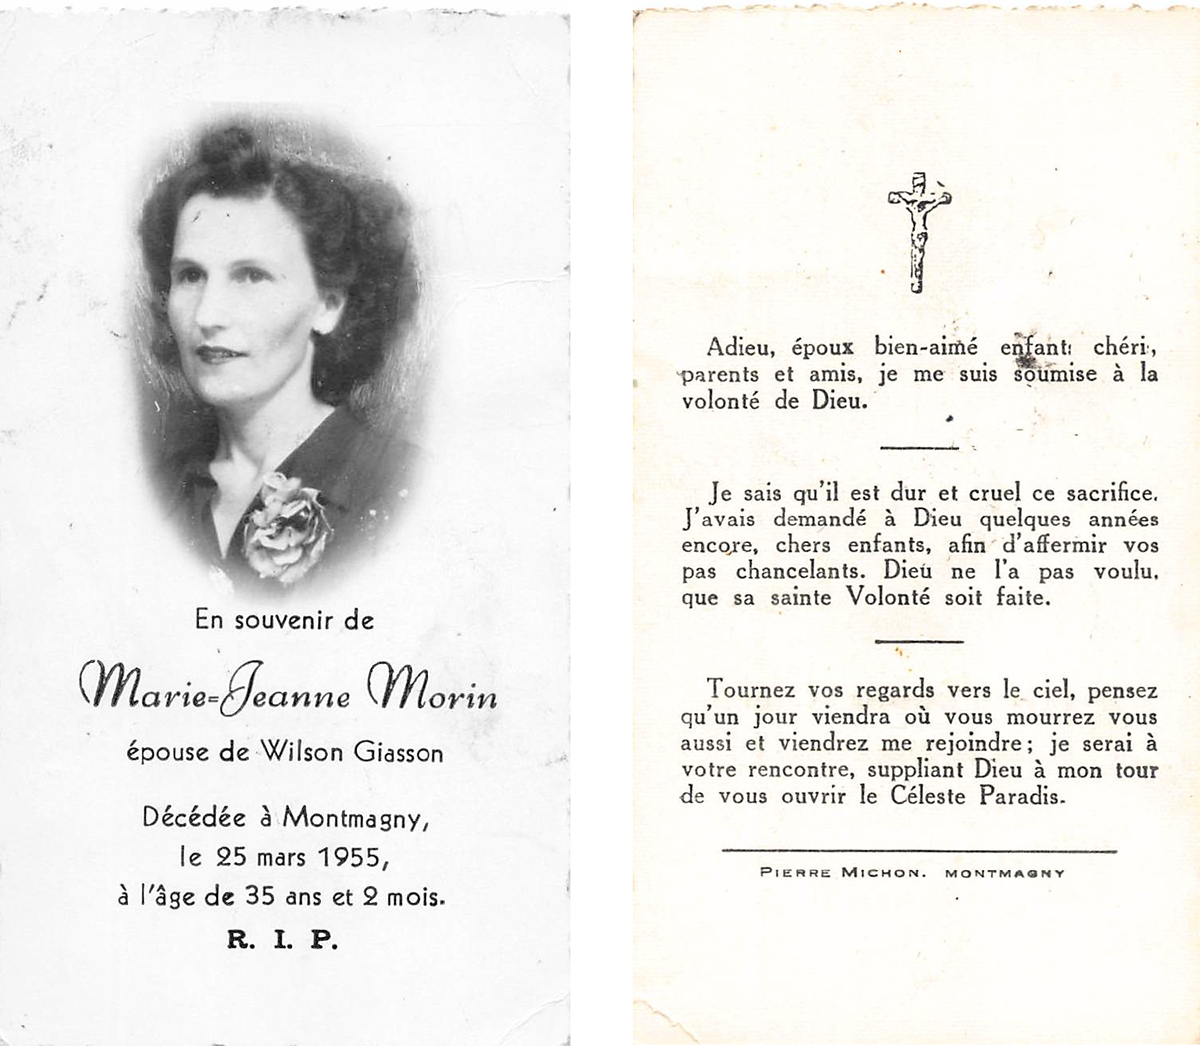 En souvenir de
Marie-Jeanne Morin
épouse de Wilson Giasson
Décédée à Montmagny,
le 25 mars 1955,
à l'âge de 35 ans et 2 mois.
R. I. P.
Adieu, époux bien-aimé enfants chéris,
parents et amis, je me suis soumise à la
volonté de Dieu.
Je sais qu'il est dur et cruel ce sacrifice.
J'avais demandé à Dieu quelques années
encore, chers enfants, afin d'affermir vos
pas chancelants. Dieu ne l'a pas voulu,
que sa sainte Volonté soit faite.
Tournez vos regards vers le ciel, pensez
qu'un jour viendra où vous mourrez vous
aussi et viendrez me rejoindre; je serai à
votre rencontre, suppliant Dieu à mon tour
de vous ouvrir le Céleste Paradis.
PIERRE MICHON. MONTMAGNY